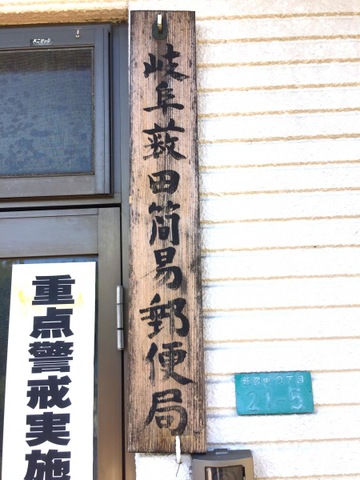 岐阜薮田簡易郵便局
重点警戒実施
21-5